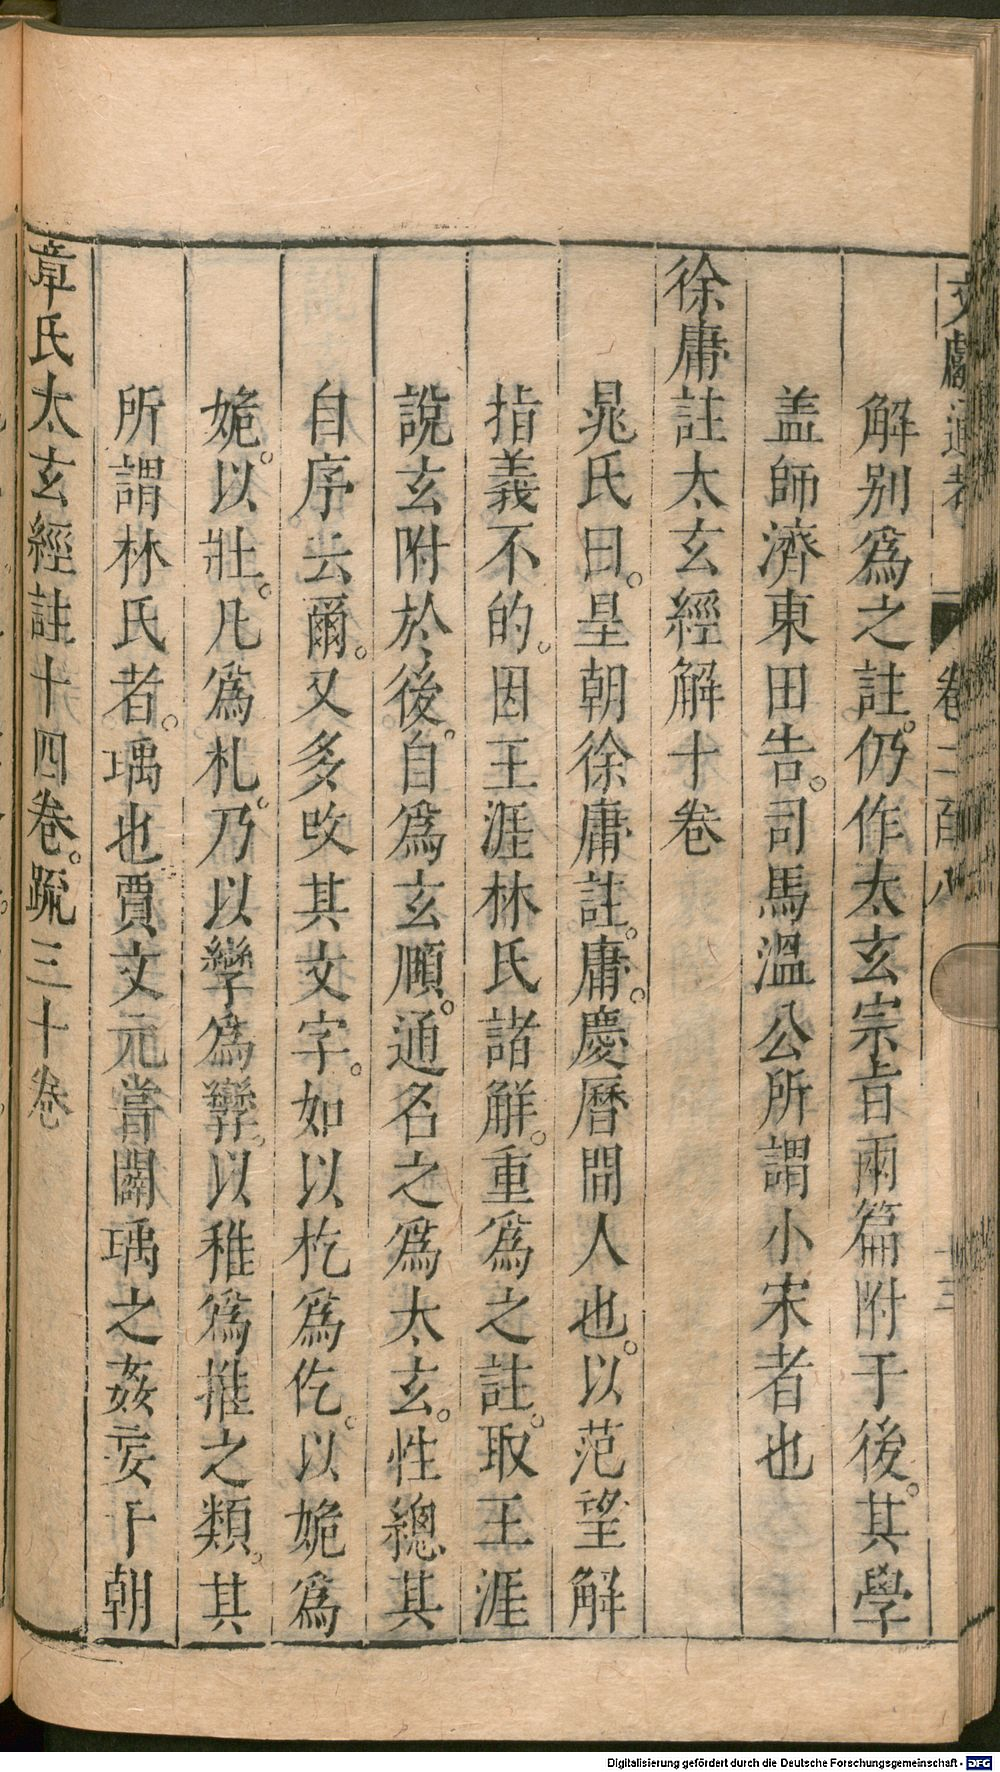 文獻通考 卷二百八 十三
解别爲之註。仍作太玄宗旨兩篇附于後。其學
盖師濟東田告。司馬溫公所謂小宋者也
徐庸註太玄經解十卷
晁氏曰。皇朝徐庸註。庸。慶曆間人也。以范望解
指義不的。因王涯林氏諸解。重爲之註。取王涯
說玄附於後。自爲玄順。通名之爲太玄。性總其
自序云爾。又多改其文字。如以杚爲仡。以姽爲
姽。以壯。凡爲札。乃以孿爲㝈。以稚爲推之類。其
所謂林氏者。瑀也賈文元嘗闢瑀之姦妄于朝
章氏太玄經註十四卷。䟽三十卷
Digitalisierung gefördert durch die Deutsche Forschungsgemeinschaft - DFG